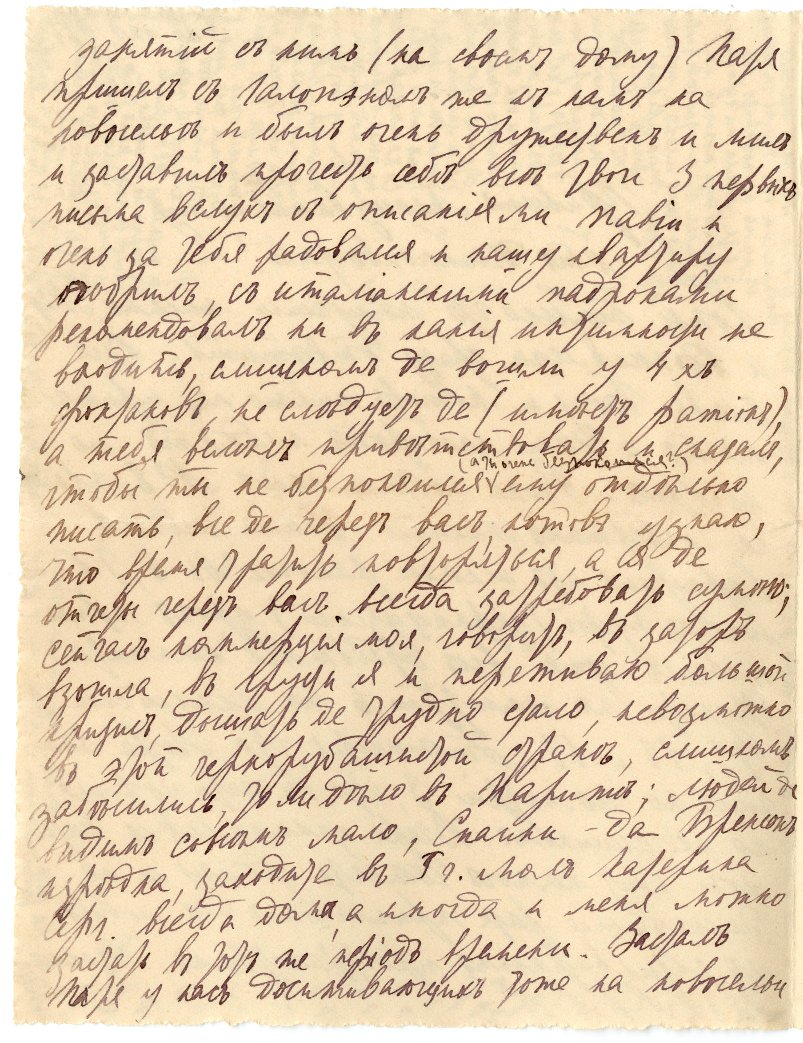 занятій съ нимъ (на своемъ дому) Паря
пришелъ съ же къ намъ на
новоселье и былъ очень дружественъ и милъ
и заставилъ прочесть себѣ все твои 3 первыхъ
письма вслухъ съ описаніями Павіи и
очень за тебя радовался и нашу квартиру
одобрилъ, съ италіанскими падронами
рекомендовалъ ни въ какія интимности не
входить, слишкомъ де вошли у 4 хъ
фонтановъ, не слѣдуетъ де (имѣетъ
а тебя велѣлъ привѣтствовать и сказалъ,
(а ты очень безпокоишься?)
чтобы ты не безпокоился ему отдѣльно
писать, все де черезъ васъ, котовъ узнаю,
что время тратить повторяться, а я де
отчеты черезъ васъ всегда затребовать сумѣю;
сейчасъ коммерція моя, говоритъ, въ зазоръ
взошла, въ груди я и переживаю большой
кризисъ, дышать де трудно стало, невозможно
въ этой чернорубашистой странѣ, слишкомъ
забѣсились, то ли дѣло въ Парижѣ; людей де
видимъ совсѣмъ мало, да Бренсонъ
изрѣдка, заходите въ 5 ч. молъ Катерина
Серг. всегда дома, а иногда и меня можно
застать въ тотъ же періодъ времени. Засталъ
Паря у насъ досиживающихъ тоже на новосельи